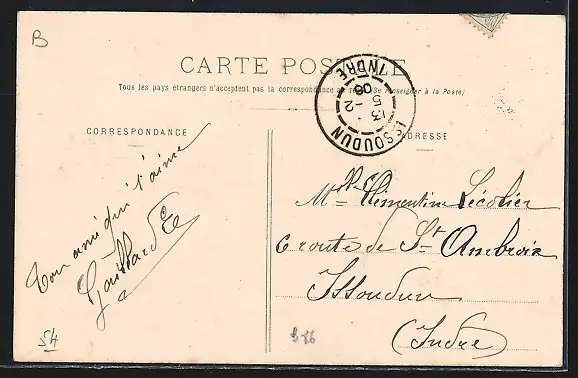 B
CARTE POSTALE
Tous les pays étrangers n'acceptent pas la correspondance au (Se renseigner à la Poste)
CORRESPONDANCE
ADRESSE
ISSOUDUN
INDRE
13
5 - 2
08
Ton ami qui t'aime
Gaillard
Mlle Clémentine Lécolier
6 route de St Ambroix
Issoudun
(Indre)
54
B-86